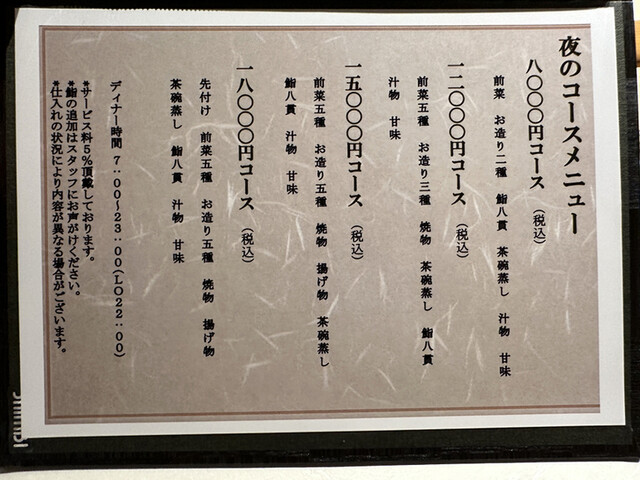 夜のコースメニュー
八〇〇〇円コース（税込）
前菜 お造り二種 鮨八貫 茶碗蒸し 汁物 甘味
一二〇〇〇円コース（税込）
前菜五種 お造り三種 焼物 茶碗蒸し 鮨八貫
汁物 甘味
一五〇〇〇円コース（税込）
前菜五種 お造り五種 焼物 揚げ物 茶碗蒸し
鮨八貫 汁物 甘味
一八〇〇〇円コース（税込）
先付け 前菜五種 お造り五種 焼物 揚げ物
茶碗蒸し 鮨八貫 汁物 甘味
ディナー時間 7：00〜23：00(LO22：00)
*サービス料5%頂戴しております。
*鮨の追加はスタッフにお声がけください。
*仕入れの状況により内容が異なる場合がございます。